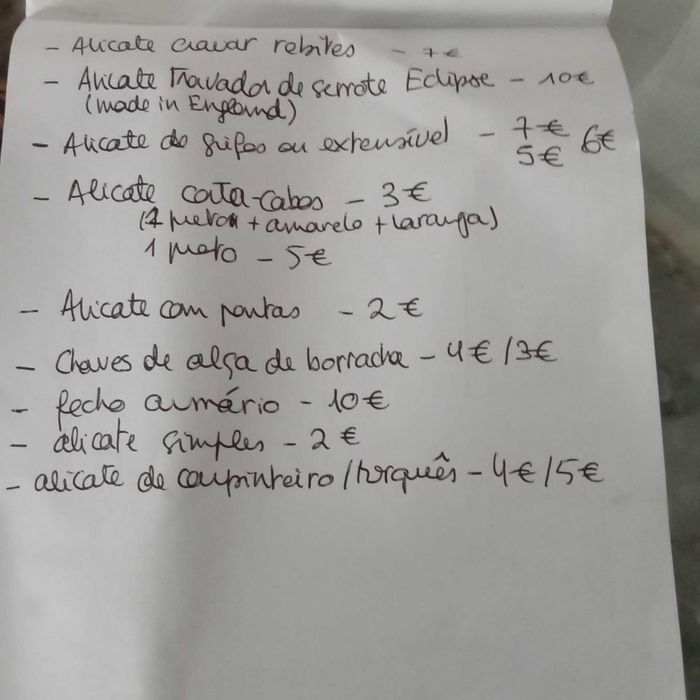 - Alicate cravar rebites - 7€
- Alicate Travador de serrote Eclipse - 10€
(made in England)
- Alicate de grifos ou extensível - 7€ 6€
5€
- Alicate corta-cabos - 3€
+ amarelo + laranja)
1 preto - 5€
- Alicate com pontas - 2€
- Chaves de alça de borracha - 4€ /3€
- fecho armário - 10€
- alicate simples - 2€
- alicate de carpinteiro/torquês - 4€/5€